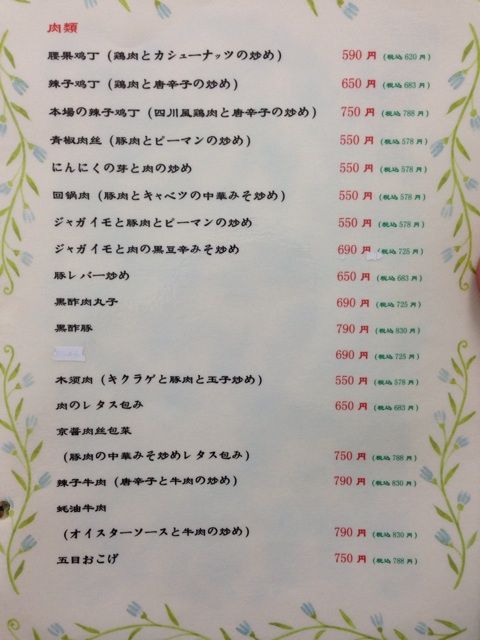 肉類
腰果鸡丁（鶏肉とカシューナッツの炒め） 590 円 (税込 620 円)
辣子鸡丁（鶏肉と唐辛子の炒め） 650 円 (税込 683 円)
本場の辣子鸡丁（四川風鶏肉と唐辛子の炒め） 750 円 (税込 788 円)
青椒肉丝（豚肉とピーマンの炒め） 550 円 (税込 578 円)
にんにくの芽と肉の炒め 550 円 (税込 578 円)
回锅肉（豚肉とキャベツの中華みそ炒め） 550 円 (税込 578 円)
ジャガイモと豚肉とピーマンの炒め 550 円 (税込 578 円)
ジャガイモと肉の黒豆辛みそ炒め 690 円 (税込 725 円)
豚レバー炒め 650 円 (税込 683 円)
黒酢肉丸子 690 円 (税込 725 円)
黒酢豚 790 円 (税込 830 円)
690 円 (税込 725 円)
木须肉（キクラゲと豚肉と玉子炒め） 550 円 (税込 578 円)
肉のレタス包み 650 円 (税込 683 円)
京醤肉丝包菜
（豚肉の中華みそ炒めレタス包み） 750 円 (税込 788 円)
辣子牛肉（唐辛子と牛肉の炒め） 790 円 (税込 830 円)
蚝油牛肉
（オイスターソースと牛肉の炒め） 790 円 (税込 830 円)
五目おこげ 750 円 (税込 788 円)